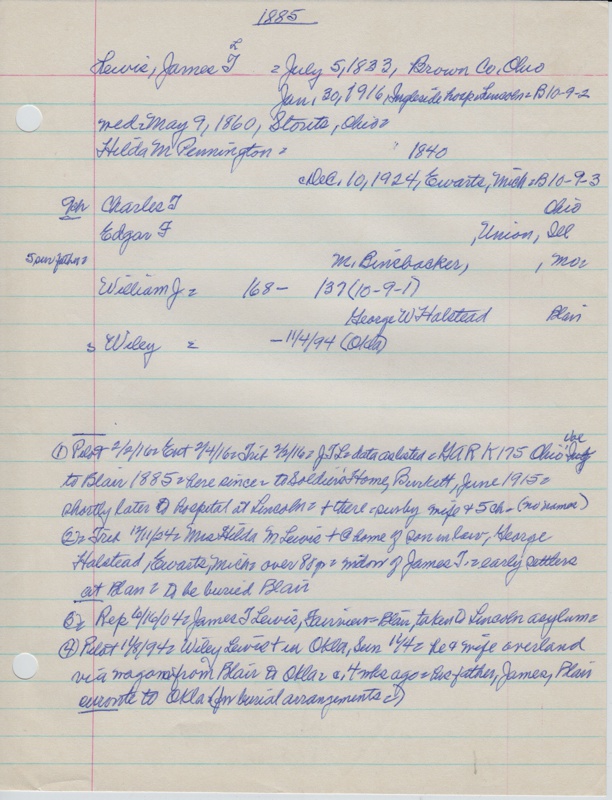 1885
L
Lewis, James T = July 5, 1833, Brown Co, Ohio
Jan. 30, 1916, Ingleside hosp = Lincoln = B10-9-2
med = May 9, 1860, Stouts, Ohio =
Hilda M Pennington = 1840
c Dec. 10, 1924, Ewarts, Mich = B10-9-3
Charles T Ohio
Edgar F , Union, Ill
5 sur father = M. Binebacker, , Mo =
William J = 168 - 137 (10-9-1)
George W Halstead Blair
s Wiley = - 11/4/94 (Okla)
① Pilot 2/2/16 = Ent 2/4/16 = Trib 2/3/16 = J T L = data as listed = GAR K 175 Ohio Vol Inf
to Blair 1885 = here since = to Soldier's Home, Burkett, June 1915 =
shortly later to hospital at Lincoln = + there = sur by wife + 5 ch = (no names)
② = Trib 12/11/24 = Mrs Hilda M Lewis + @ home of son in law, George
Halstead, Ewarts, Mich = over 80 yr = widow of James T. = early settlers
at Blair = to be buried Blair
③ = Rep 4/16/04 = James T Lewis, Fairview = Blair, taken to Lincoln asylum =
④ Pilot 11/8/94 = Wiley Lewis + in Okla, Sun 11/4 = he + wife overland
via wagon from Blair to Okla = c. 4 mks ago = his father, James, Blair
enroute to Okla (for burial arrangements = ?)